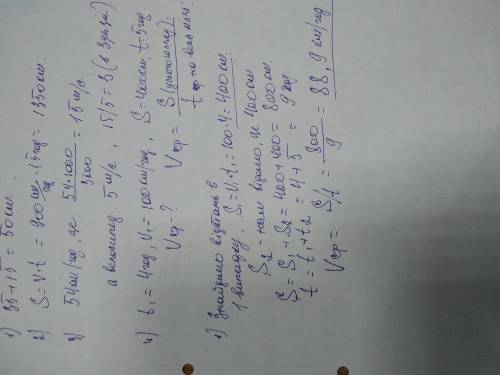 1) 35+15 = 50 км.
2) S = V₁t = 900 км/год · 1,5 год = 1350 км.
3) 54 км/год, це 54·1000/3600 = 15 м/с
а велосипед. 5 м/с, 15/5 = 3 (в 3 рази).
4) t₁ = 4 год, V₁ = 100 км/год, S = 400 км. t = 5 год.
Vср - ? Vср = S (усього шляху)/t
1) Знайдемо відстань в
1 випадку, S₁ = V₁·t₁ = 100·4 = 400 км.
S₂ - нам відомо, це 400 км.
S = S₁ + S₂ = 400 + 400 = 800 км.
t = t₁ + t₂ = 4 + 5 = 9 год.
Vср = S/t = 800/9 = 88,9 км/год